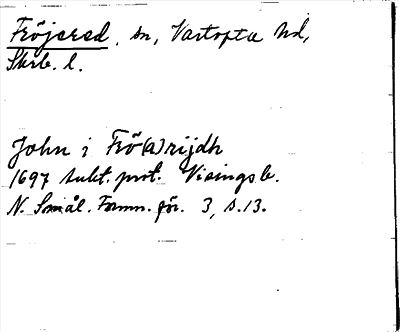 Fröjered, sn, Vartofta hd,
Skrb. l.
John i Frö(a)rijdh
1697 aukt. prot. Visingsb.
N. Smål. Fornm. för. 3, s. 13.